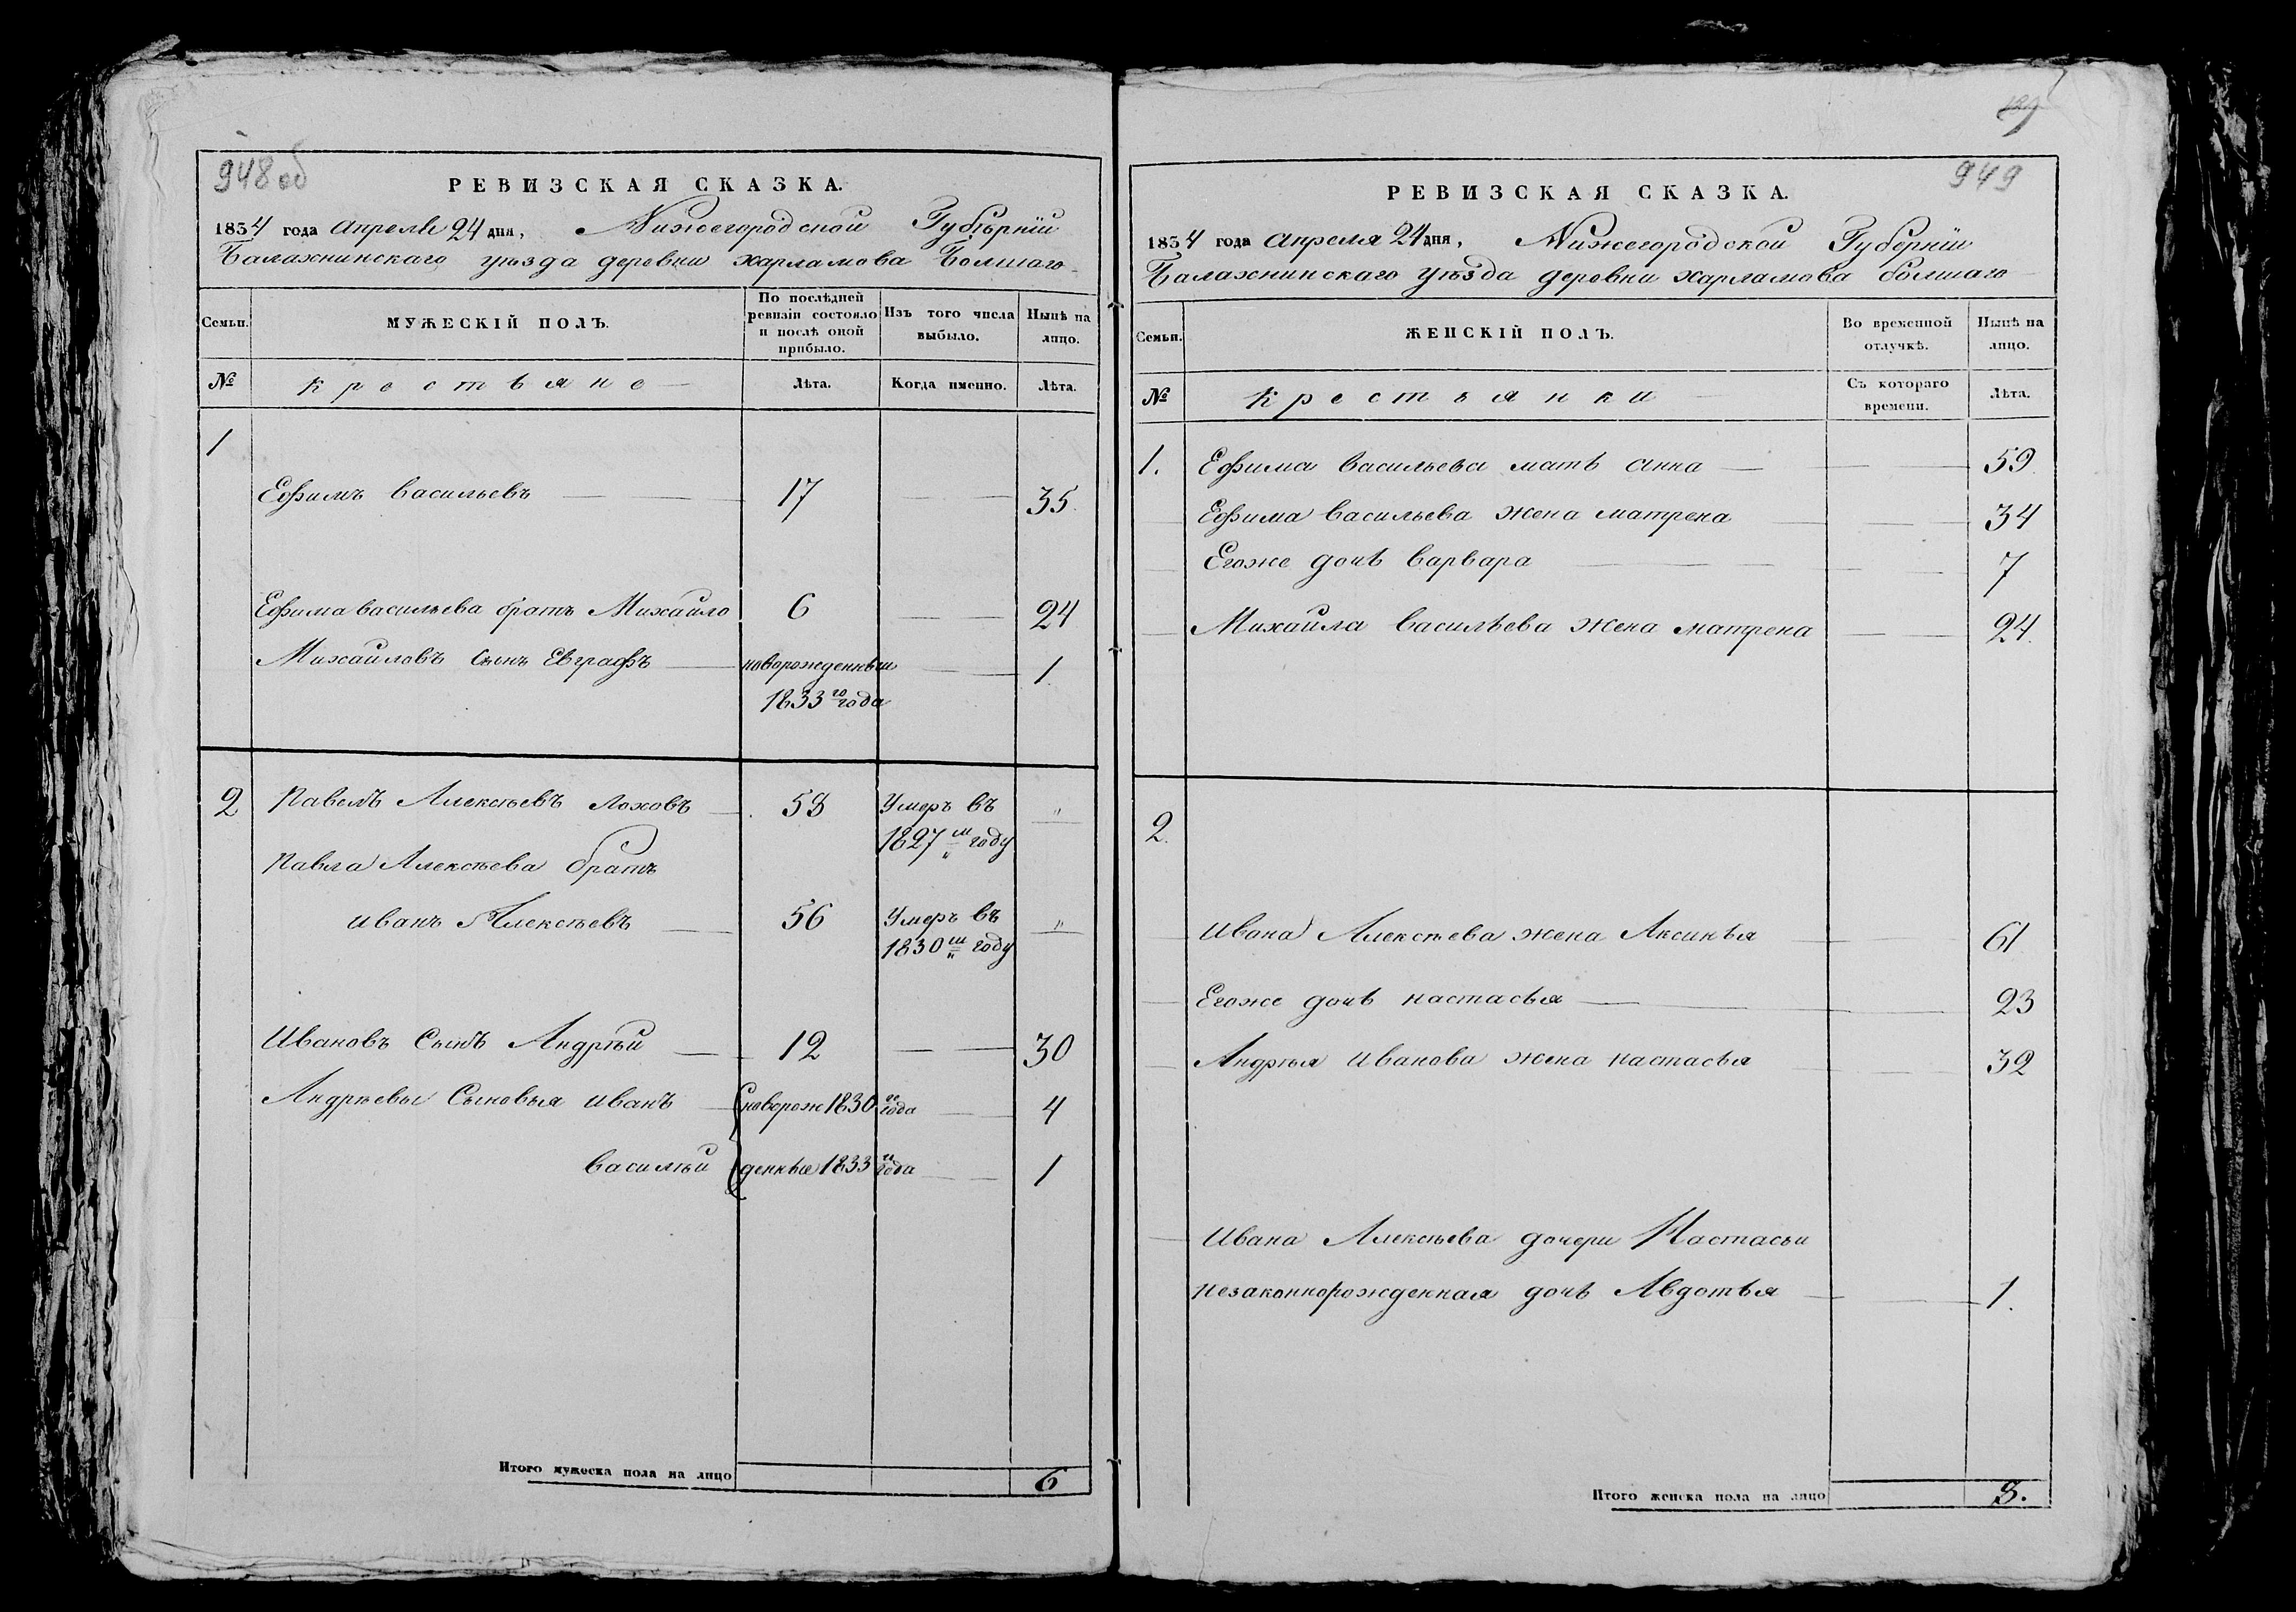 948 об
РЕВИЗСКАЯ СКАЗКА.
1834 года апреля 24 дня, Нижегородской Губѣрніи
Балахнинскаго уѣзда деревни харламова Болшаго
Семьи.
МУЖЕСКІЙ ПОЛЪ.
По послѣдней ревизіи состояло и послѣ оной прибыло.
Изъ того числа выбыло.
Нынѣ на лицо.
№
крестьяне
Лѣта.
Когда именно.
Лѣта.
1
Ефимъ васильевъ 17 35.
Ефима васильева братъ Михайло 6 24
Михайловъ сынъ Евграфъ новорожденный 1
1833го года
2 Павелъ Алексѣевъ Лоховъ 58 Умеръ въ "
1827м году
Павла Алексѣева братъ
иванъ Алексѣевъ 56 Умеръ въ "
1830м году
Ивановъ Сынъ Андрѣй 12 30
Андрѣевы Сыновья иванъ новорож 1830го года 4
василѣй денные 1833го года 1
Итого мужеска пола на лицо 6
949
РЕВИЗСКАЯ СКАЗКА.
1834 года апреля 24 дня, Нижегородской Губерніи
Балахнинскаго уѣзда деревни харламова болшаго
Семьи.
ЖЕНСКІЙ ПОЛЪ.
Во временной отлучкѣ.
Нынѣ на лицо.
№
крестьянки
Съ котораго времени.
Лѣта.
1. Ефима васильева мать анна 59.
Ефима васильева жена матрена 34
Егоже дочь варвара 7
Михайла васильева жена матрена 24.
2.
ивана Алексѣева жена Аксинья 61
Егоже дочь настасья 23
Андрѣя иванова жена настасья 32
ивана Алексѣева дочери Настасьи
незаконнорожденная дочь Авдотья 1.
Итого женска пола на лицо 8.